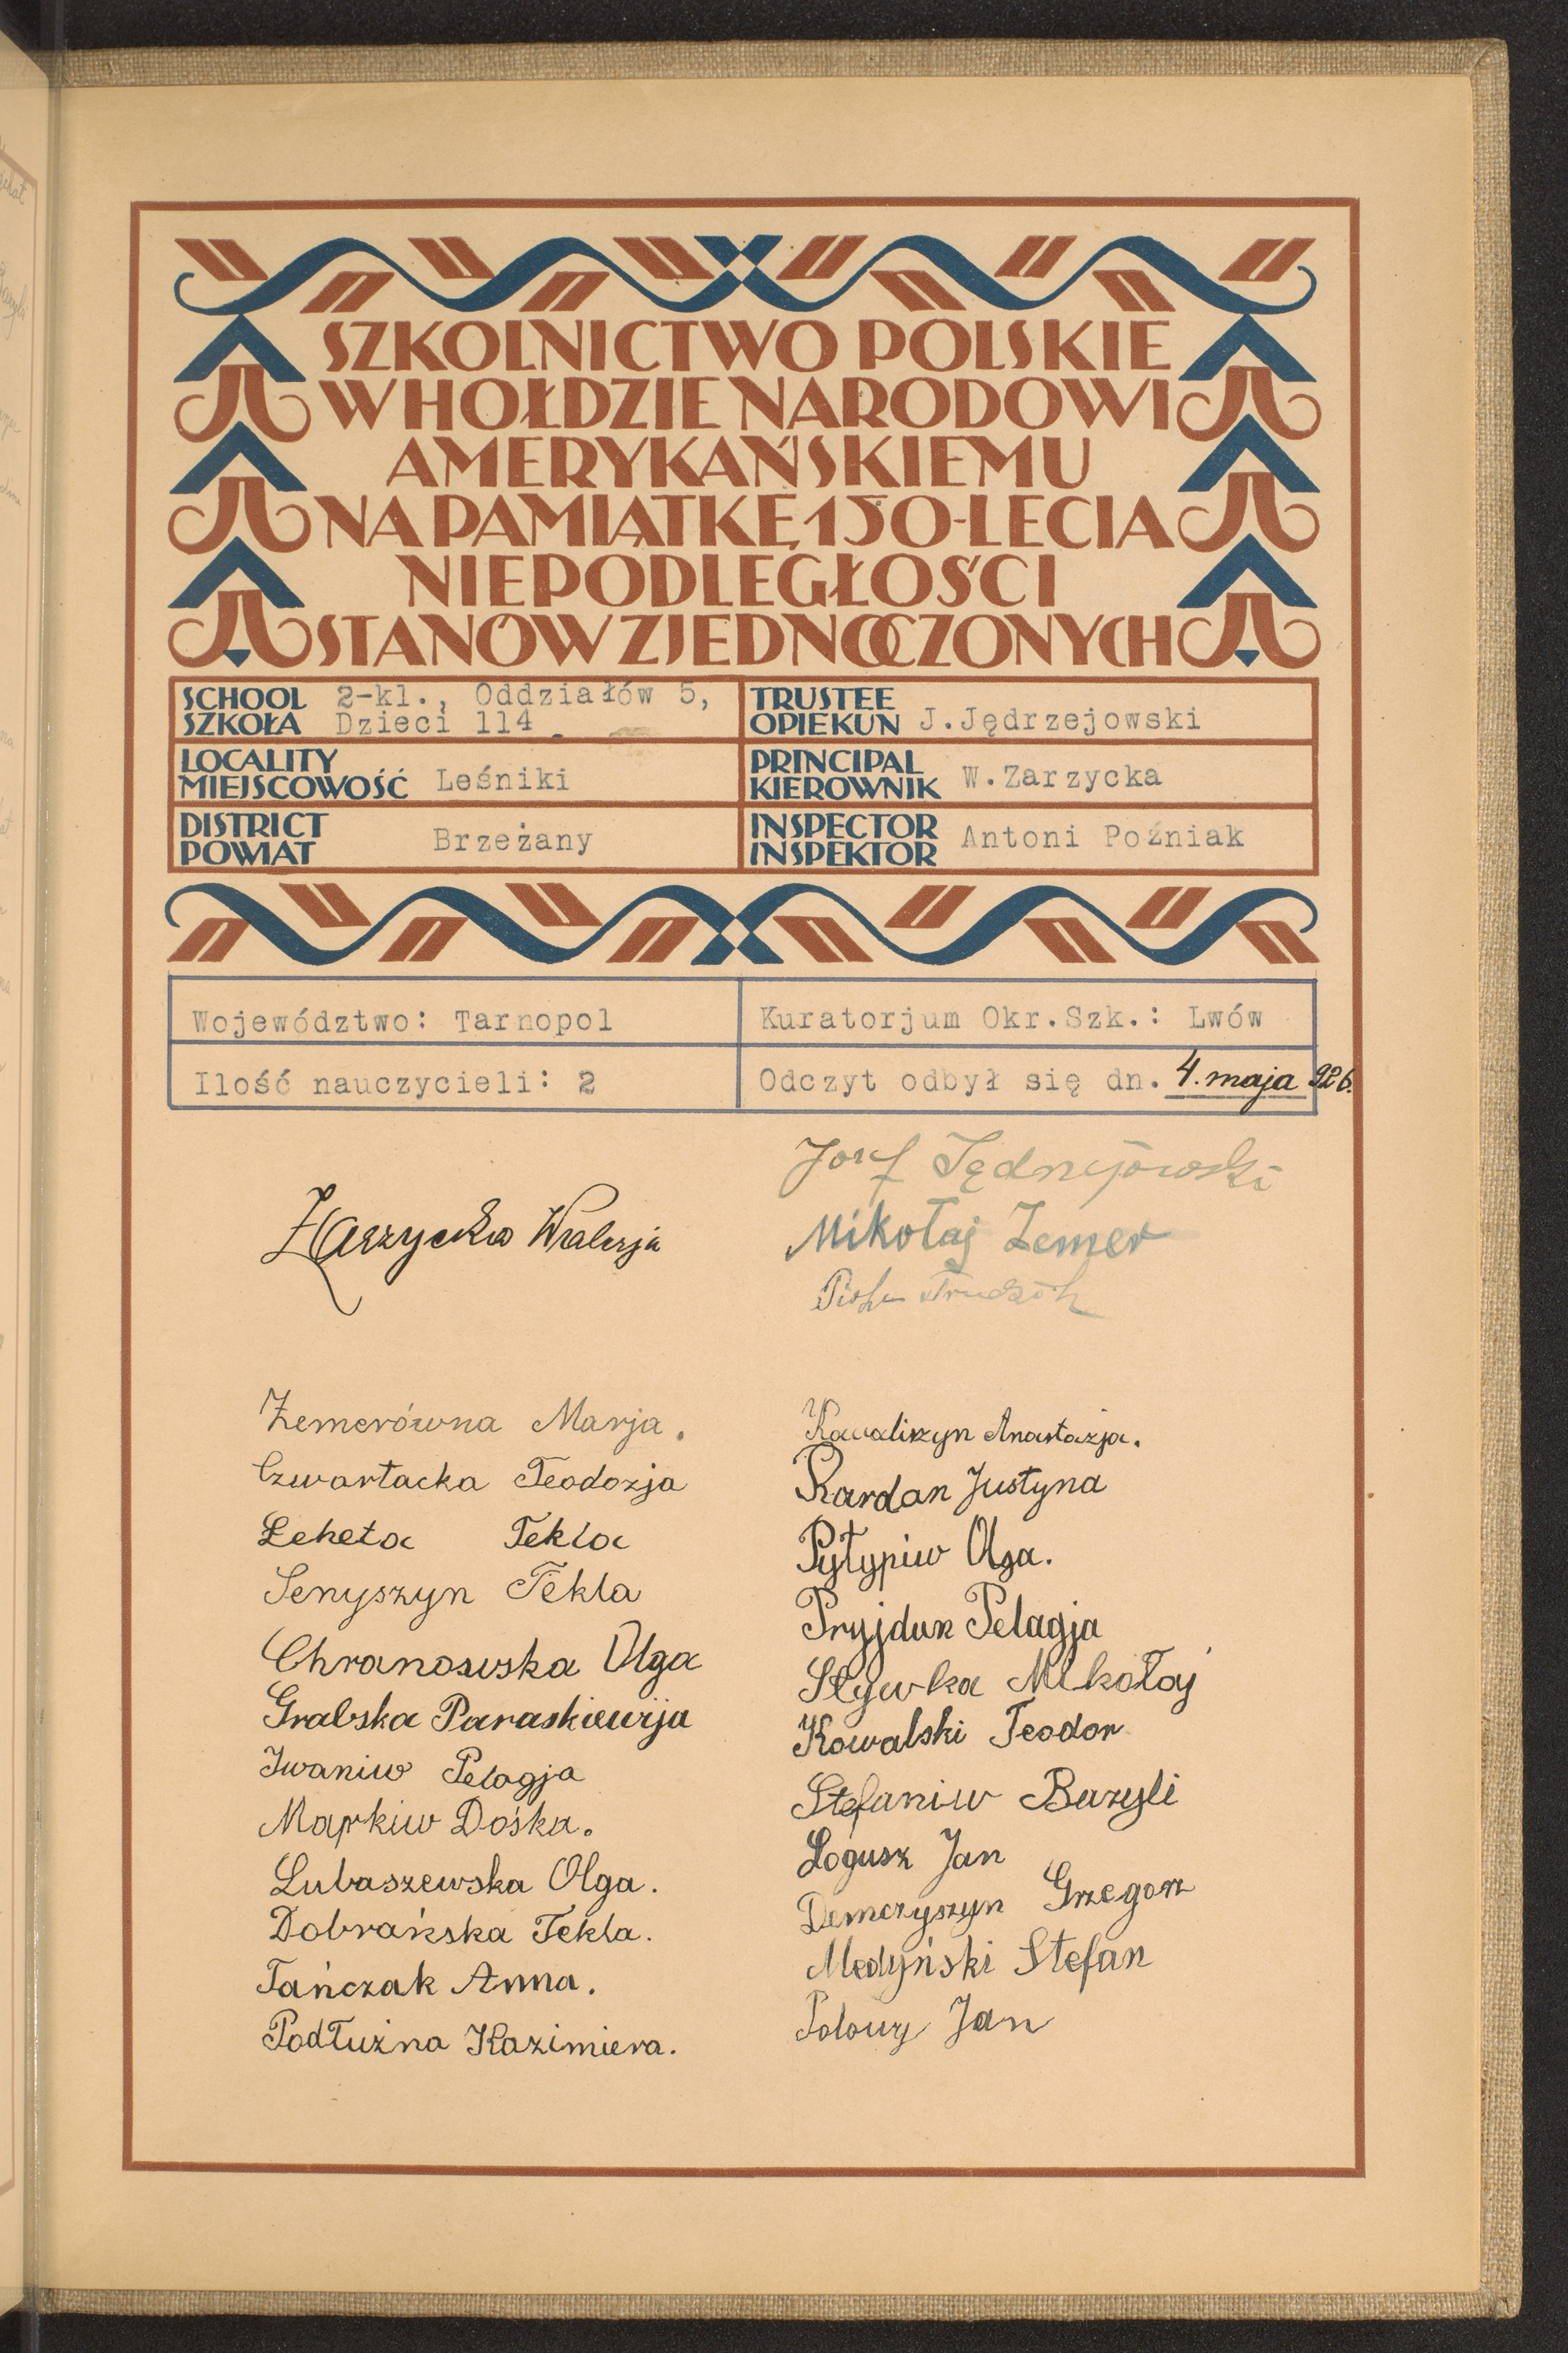 SZKOLNICTWO POLSKIE
W HOŁDZIE NARODOWI
AMERYKAŃSKIEMU
NA PAMIĄTKĘ 150-LECIA
NIEPODLEGŁOŚCI
STANÓW ZJEDNOCZONYCH
SCHOOL
SZKOŁA
2-kl., Oddziałów 5,
Dzieci 114
TRUSTEE
OPIEKUN J.Jędrzejowski
LOCALITY
MIEJSCOWOŚĆ Leśniki
PRINCIPAL
KIEROWNIK W.Zarzycka
DISTRICT
POWIAT Brzeżany
INSPECTOR
INSPEKTOR Antoni Poźniak
Województwo: Tarnopol
Kuratorjum Okr.Szk.: Lwów
Ilość nauczycieli: 2
Odczyt odbył się dn. 4. maja 926.
Józef Jędrzejowski
Zarzycka Walerja
Mikołaj Zemer
Piotr
Zemerówna Marja.
Czwartacka Teodozja
Leheta Tekla
Senyszyn Tekla
Chranowska Olga
Grabska Paraskiewija
Iwaniw Pelagja
Markiw Dośka.
Lubaszewska Olga.
Dobrańska Tekla.
Tańczak Anna.
Podłużna Kazimiera.
Kowaliszyn Anastazja.
Kardan Justyna
Pyłypiw Olga.
Pryjdun Pelagja
Slywka Mikołaj
Kowalski Teodor
Stefaniw Bazyli
Łogusz Jan
Demczyszyn Grzegorz
Medyński Stefan
Polowy Jan